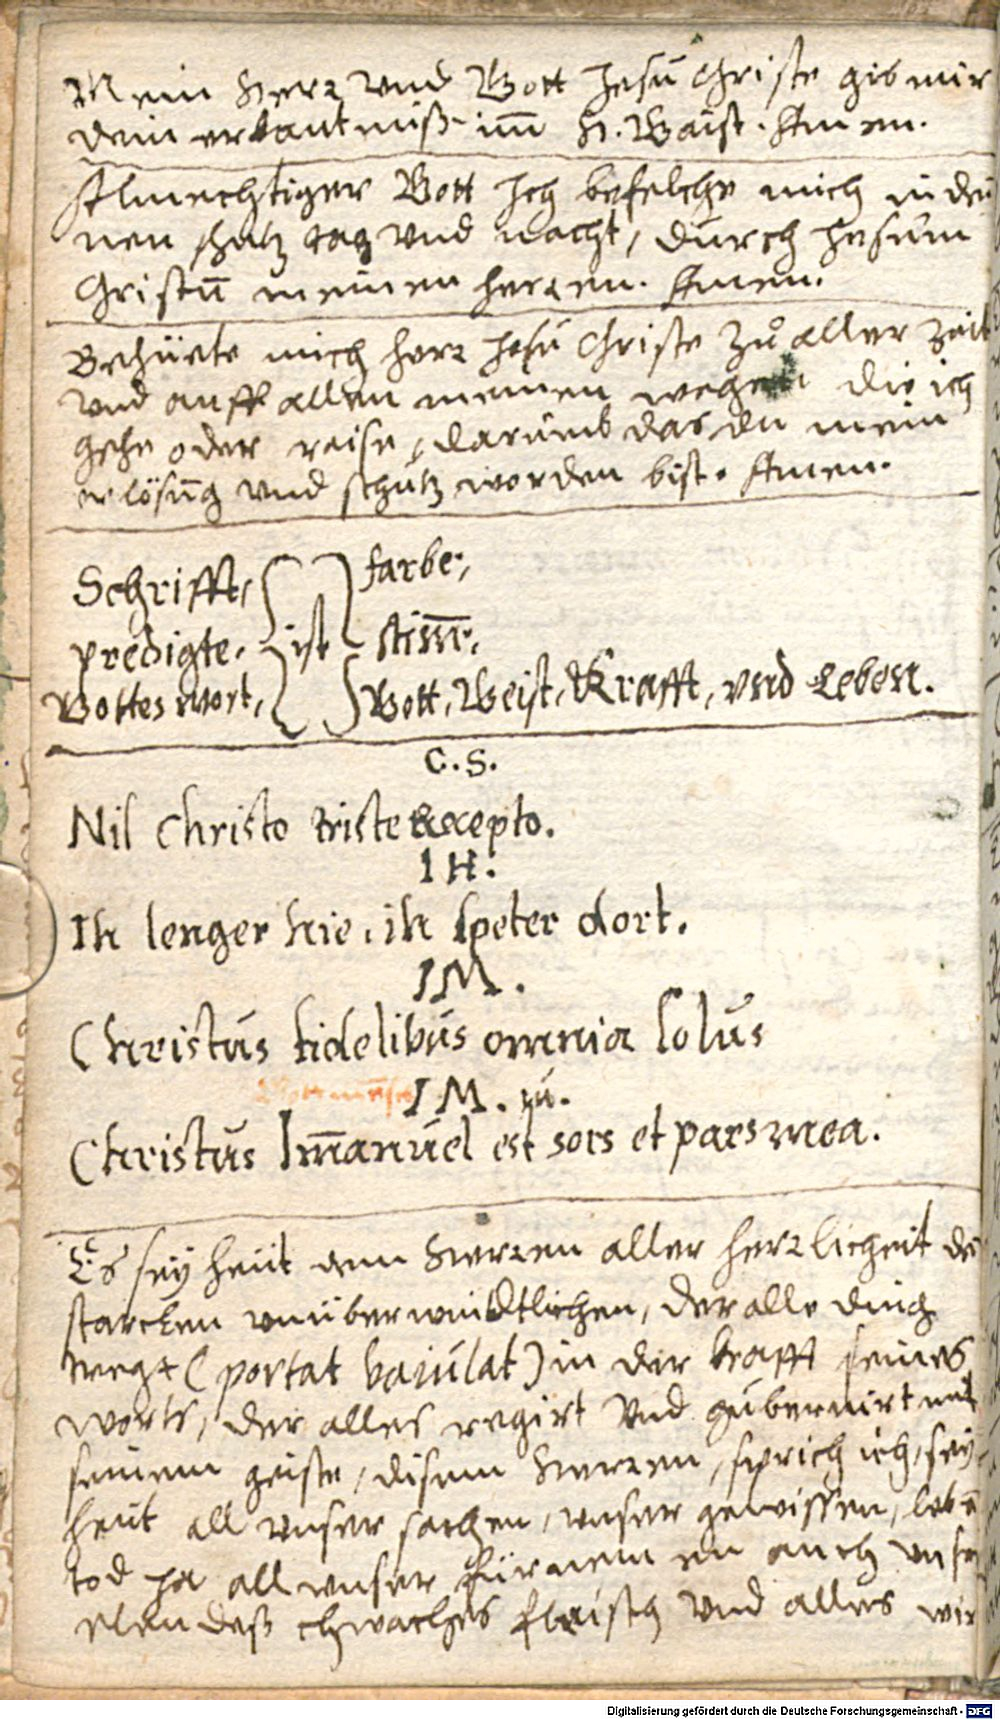 Mein Herr vnd Gott Jesu Christe gib mir
dein erkantnuß im H. Gaist. Amen.
Almechtiger Gott Ich befelche mich in dei
nen schutz tag vnd nacht, durch Jesum
Christū meinen herren. Amen.
Behüete mich herr Jesu Christe Zů aller zeit
vnd auff allen meinen wegen die ich
gehe oder reise, darumb das du mein
erlösūg vnd schutz worden bist. Amen.
Schrifft, farbe,
predigte. ist stim̄,
Gottes wort, Gott, Geist, Krafft, vnd Leben.
C. S.
Nil Christo triste recepto.
I H.
Ih lenger hie, ih speter dort.
I M.
Christus fidelibus omnia solus
I M. w.
Christus Im̄anuel est sors et pars mea.
Es sey heüt dem Herren aller herrlicheit de
starcken vnüberwindtlichen, der alle ding
tregt (portat baiulat) in der krafft seines
worts, der alles regirt vnd gubernirt mit
seinem geiste, disem Herren, sprich ich, sey
heüt all vnser sachen, vnser gewissen, lebē
tod ja all vnser fürnemen auch vnser
elendeß schwaches flaisch vnd alles wir
Digitalisierung gefördert durch die Deutsche Forschungsgemeinschaft - DFG